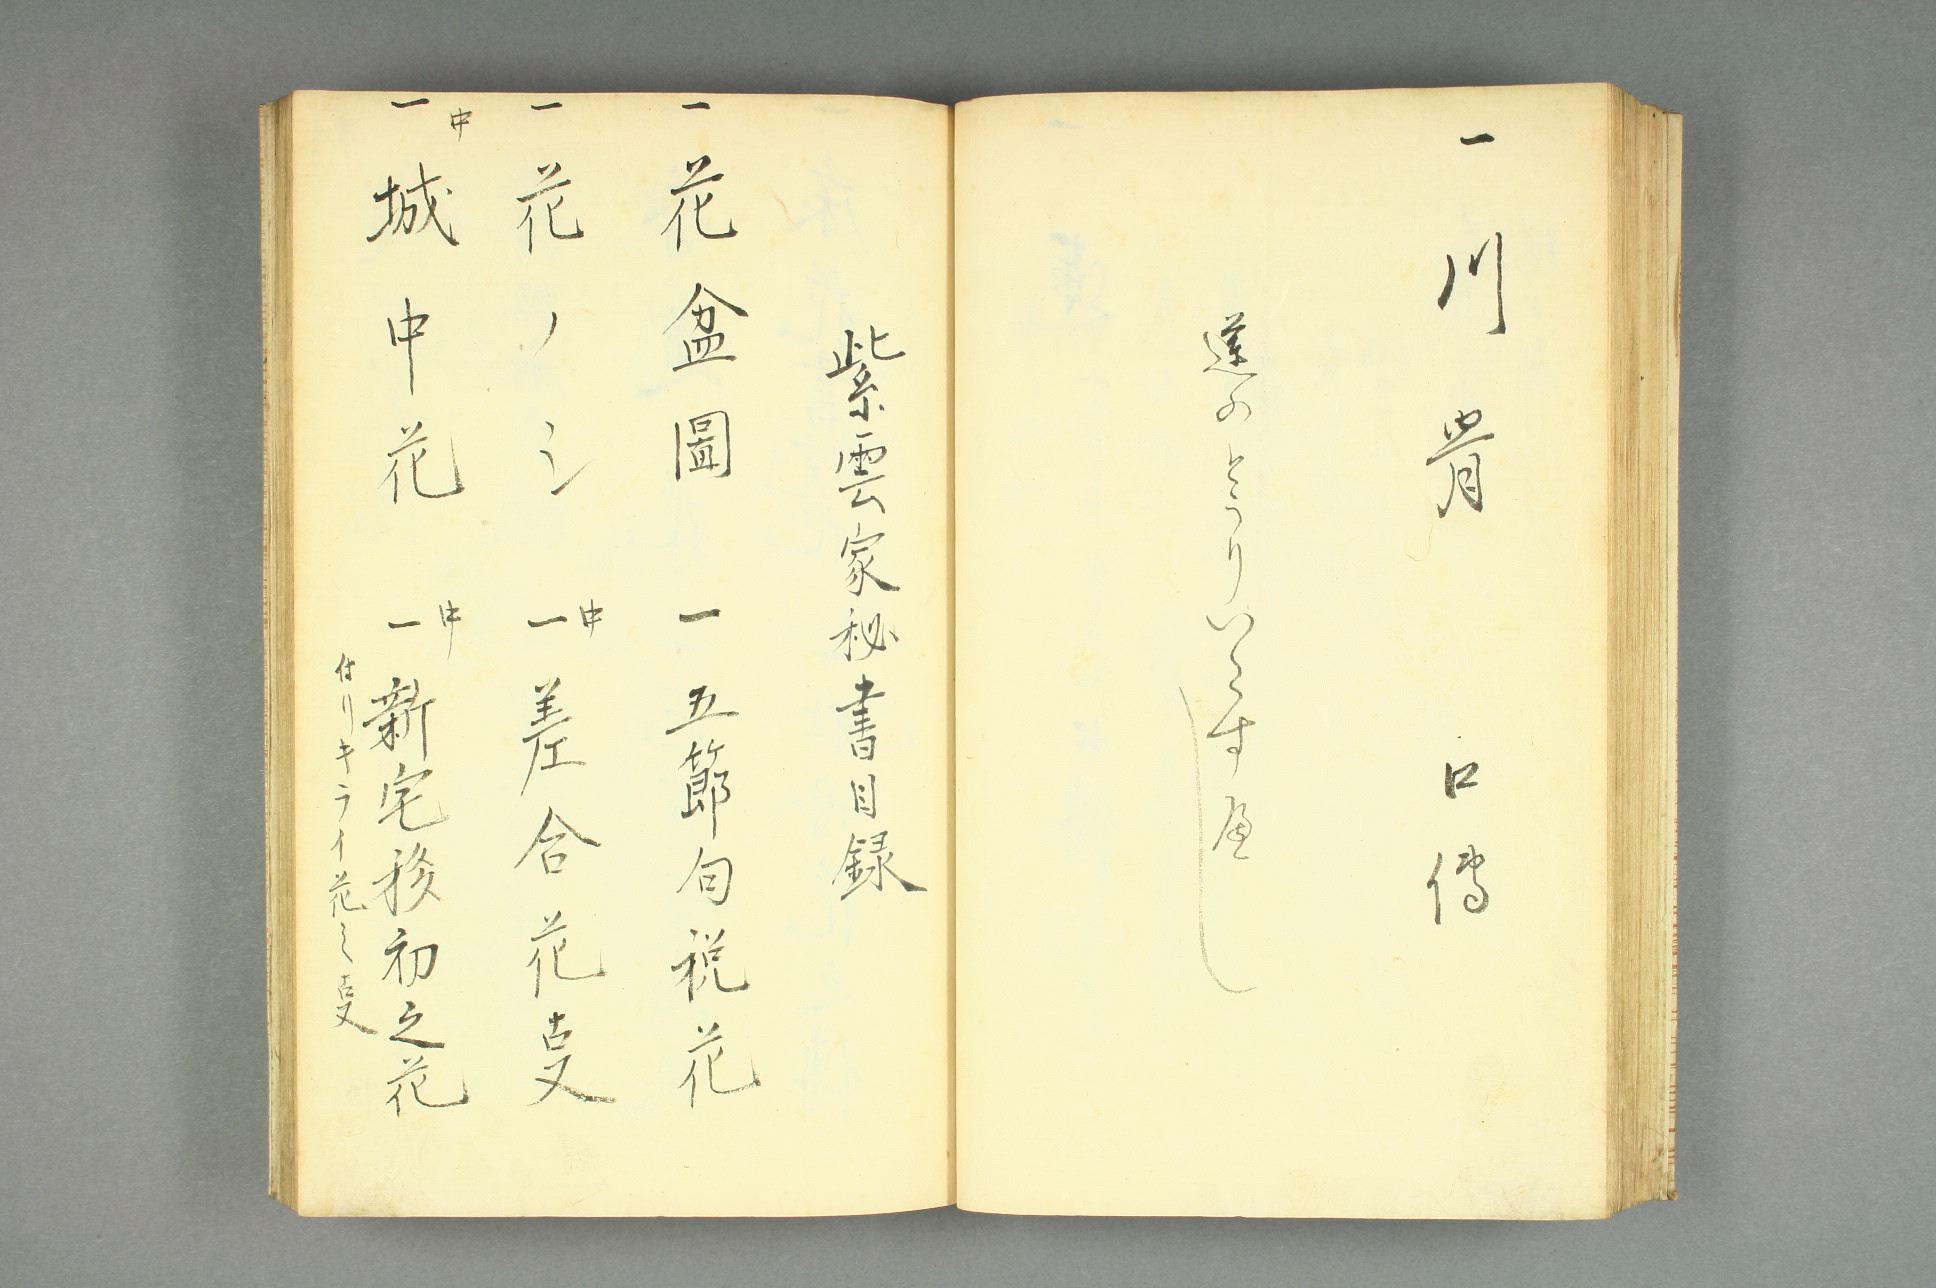 一 川骨 口傳
蓮のとうり
紫雲家秘書目録
一 花盆圖 一 五節句祝花
一 花ノシ 一 中 差合花㕝
一 中 城中花 一 中 新宅移初之花
付リキライ花之㕝